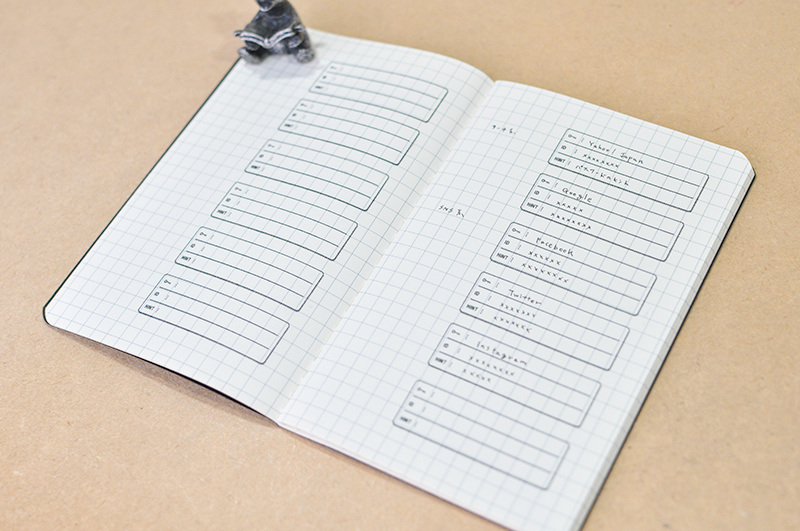 ID
HINT
ID
HINT
ID
HINT
ID
HINT
ID
HINT
ID
HINT
Yahoo! Japan
ID xxxxxxxx
HINT
Google
ID xxxxx
HINT xxxxxxxx
SNS系
Facebook
ID xxxxxx
HINT xxxxxxxx
Twitter
ID xxxxxxx
HINT xxxxxxx
Instagram
ID xxxxxxxx
HINT xxxxx
ID
HINT